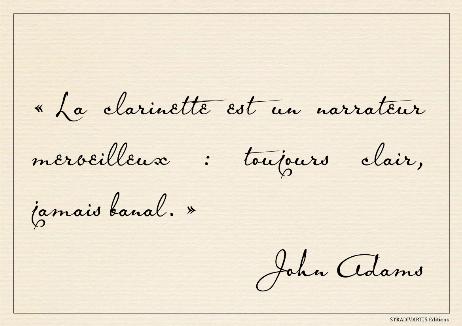 « La clarinette est un narrateur
merveilleux : toujours clair,
jamais banal. »
John Adams
STRADIVARIUS Editions